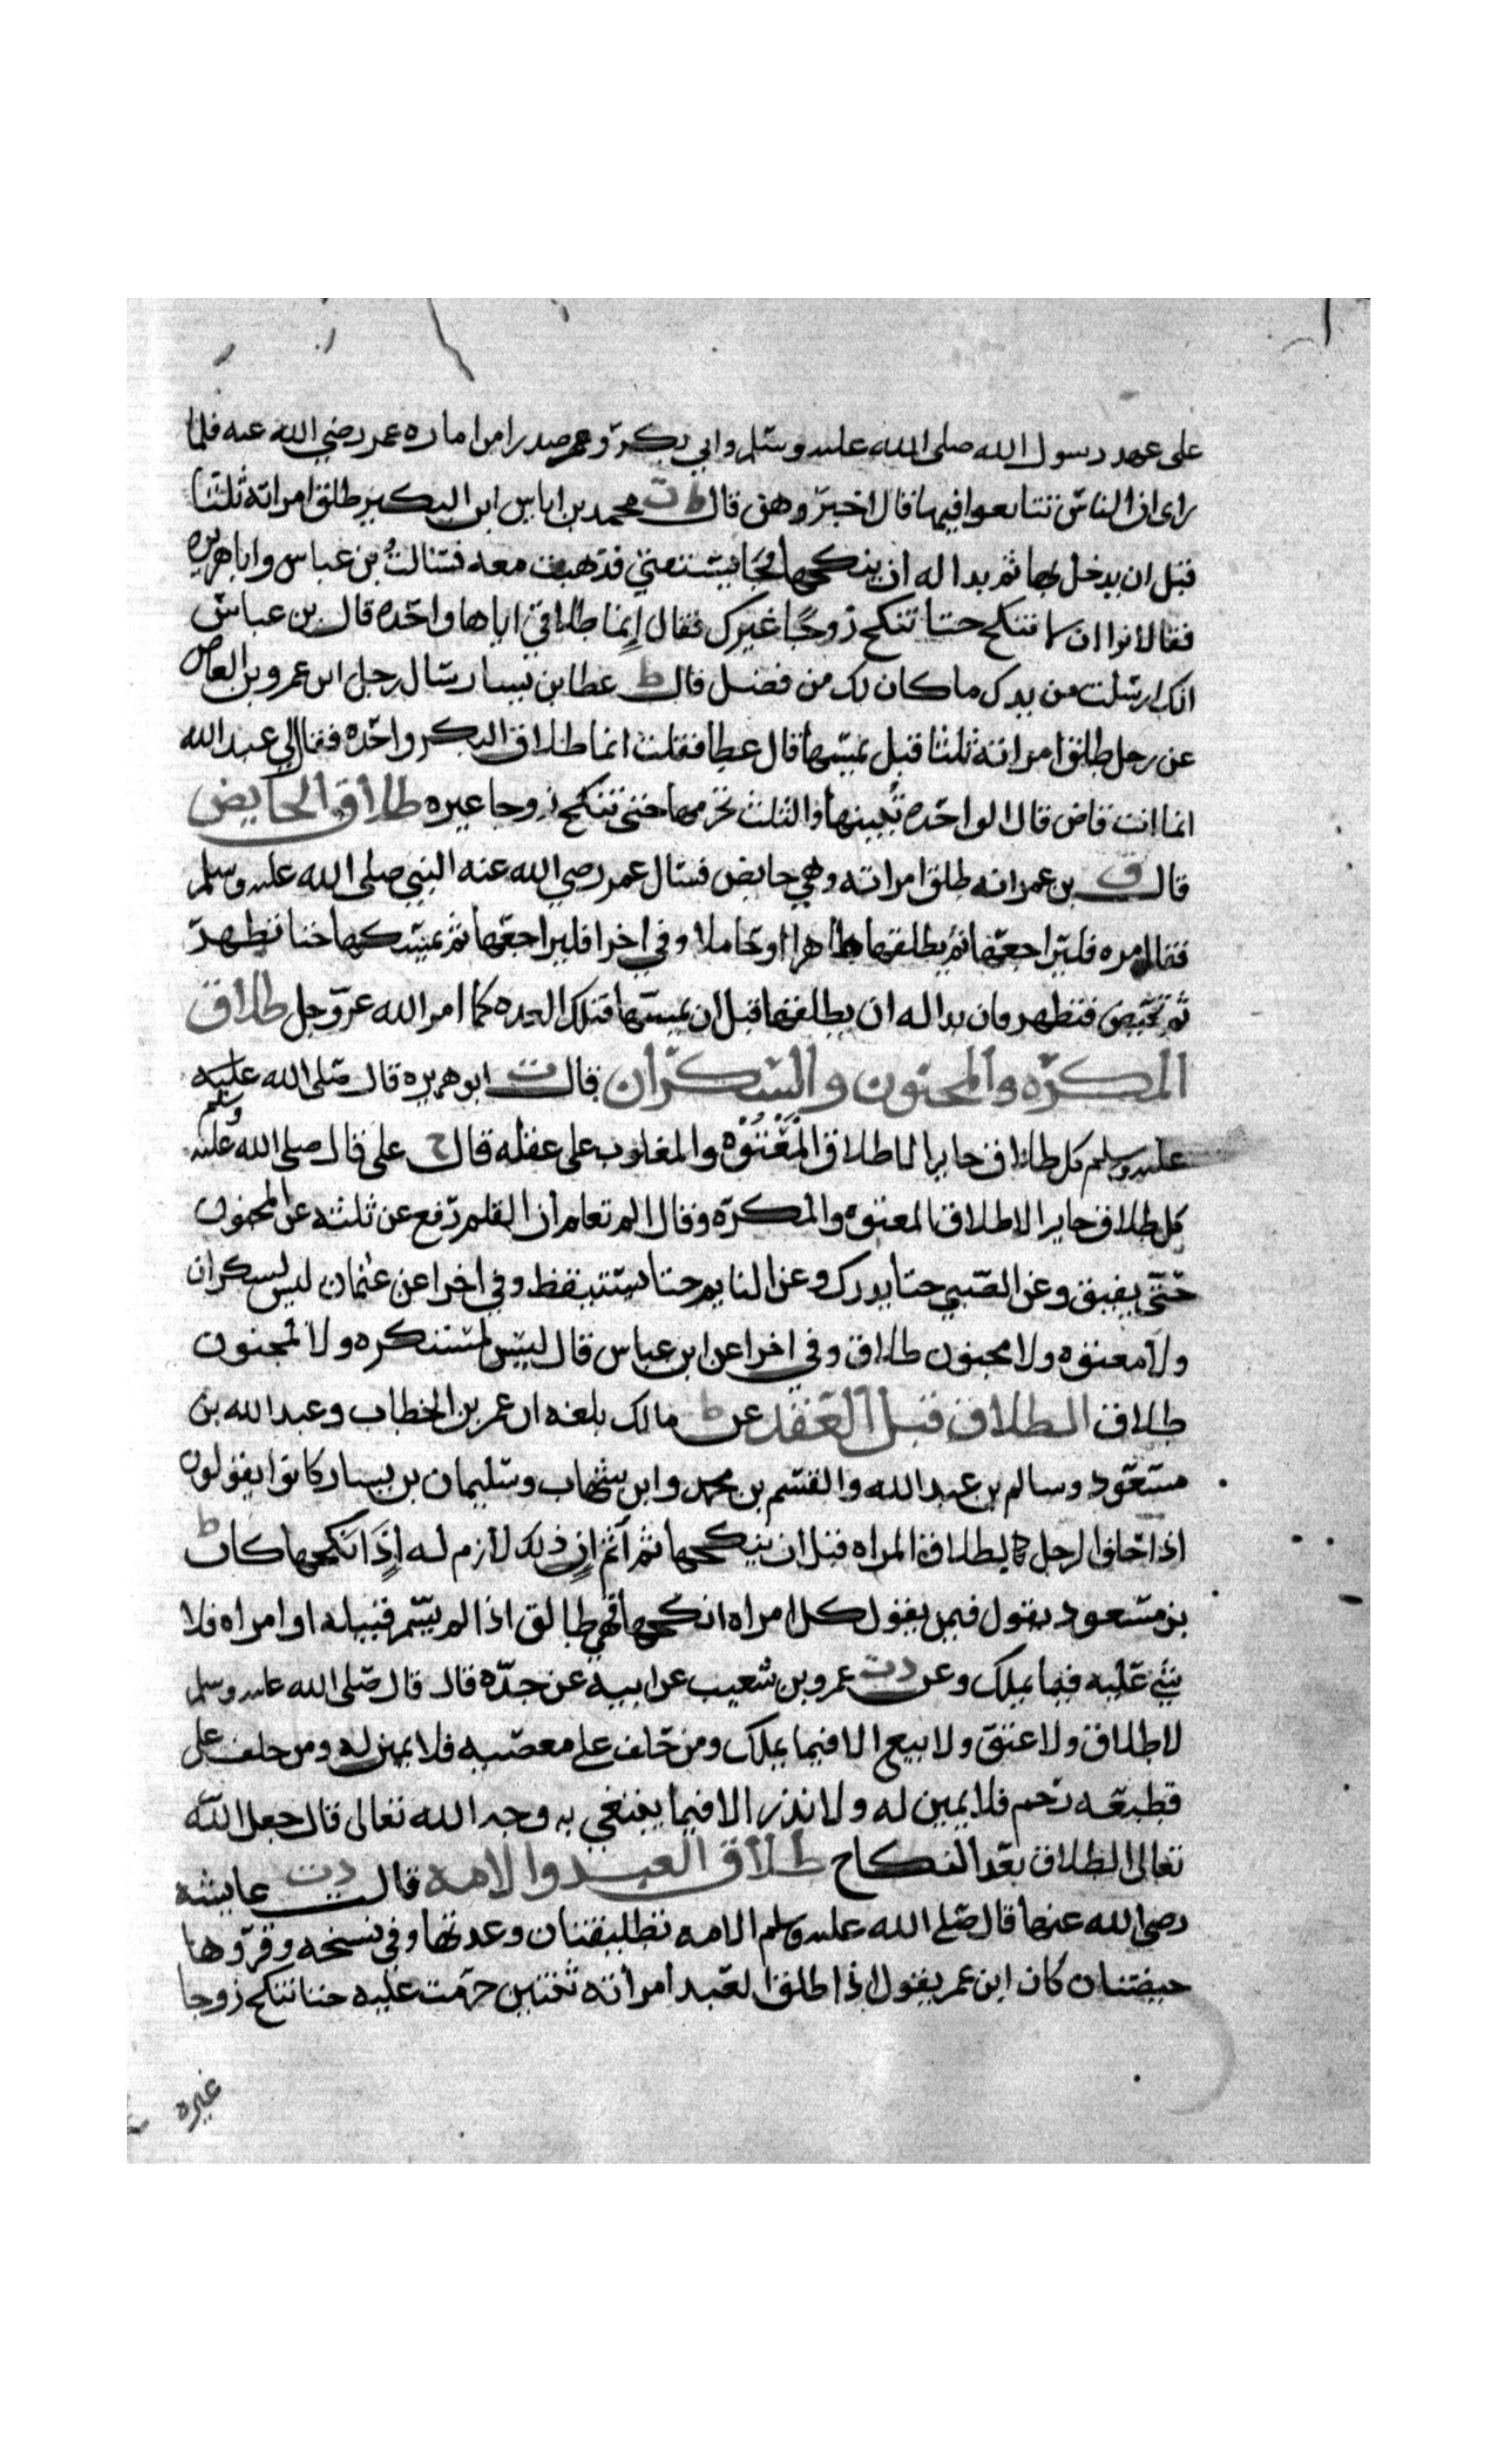 على عهد رسول الله صلى الله عليه وسلم وابي بكر وعمر صدرا من اماره عمر رضي الله عنه فلما
راى ان الناس تتابعوا فيها قال اخبروهن قال ط ت محمد بن اياس ابن البكير طلق امراته ثلثا
قبل ان يدخل بها ثم بدا له ان ينكحها فجا يستفتي فذهبت معه فسالت بن عباس وابا هريره
فقالا نوا ان لا تنكح حتا تنكح زوجا غيرك فقال إنما طلاقي اياها واحده قال بن عباس
انك ارسلت من يدك ما كان لك من فضل قال ط عطا بن يسار سال رجل ابن عمرو بن العاص
عن رجل طلق امراته ثلثا قبل يمسها قال عطا فقلت انما طلاق البكر واحده فقال لي عبد الله
انما انت قاض قال الواحده تبينها والثلث تحرمها حتى تنكح زوجا غيره طلاق الحايض
قال ق بن عمر انه طلق امراته وهي حايض فسال عمر رضي الله عنه النبي صلى الله عليه وسلم
فقال مره فليراجعها ثم يطلقها طاهرا او حاملا وفي اخرا فليراجعها ثم يمسكها حتا تطهر
ثم تحيض فتطهر فان بدا له ان يطلقها قبل ان يمسها فتلك العده كما امر الله عز وجل طلاق
المكره والمجنون والسكران قال ت ابو هريره قال صلى الله عليه
وسلم
عليه وسلم كل طلاق جايز الا طلاق المعتوه والمغلوب على عقله قال خ على قال صلى الله عليه
كل طلاق جايز الا طلاق المعتوه والمكره وقال الم تعلم ان القلم رفع عن ثلثه عن المجنون
حتى يفيق وعن الصبي حتا يدرك وعن النايم حتا يستيقظ وفي اخرا عن عثمان ليس لسكران
ولا معتوه ولا مجنون طلاق وفي اخرا عن ابن عباس قال ليس لمستكره ولا لمجنون
طلاق الطلاق قبل العقد عن ط مالك بلغه ان عمر بن الخطاب وعبد الله بن
مسعود وسالم بن عبد الله والقسم بن محمد وابن شهاب وسليمان بن يسار كانوا يقولون
اذا حلف الرجل بطلاق المراه قبل ان ينكحها ثم آثم ان ذلك لازم له إذا نكحها كان ط
بن مسعود يقول فيمن يقول كل امراه انكحها فهي طالق اذا لم يسم قبيله او امراه فلا
شي عليه فيما يملك وعن د ت عمرو بن شعيب عن ابيه عن جده قال قال صلى الله عليه وسلم
لا طلاق ولا عتق ولا بيع الا فيما يملك ومن حلف على معصيه فلا يمين له ومن حلف على
قطيعه رحم فلا يمين له ولا نذر الا فيما يبتغي به وجه الله تعالى قال جعل الله
تعالى الطلاق بعد النكاح طلاق العبد والامه قال د ت عايشه
رضي الله عنها قال صلى الله عليه وسلم الامه تطليقتان وعدتها وفي نسخه وقروها
حيضتان كان ابن عمر يقول اذا طلق العبد امراته ثنتين حرمت عليه حتا تنكح زوجا
غيره